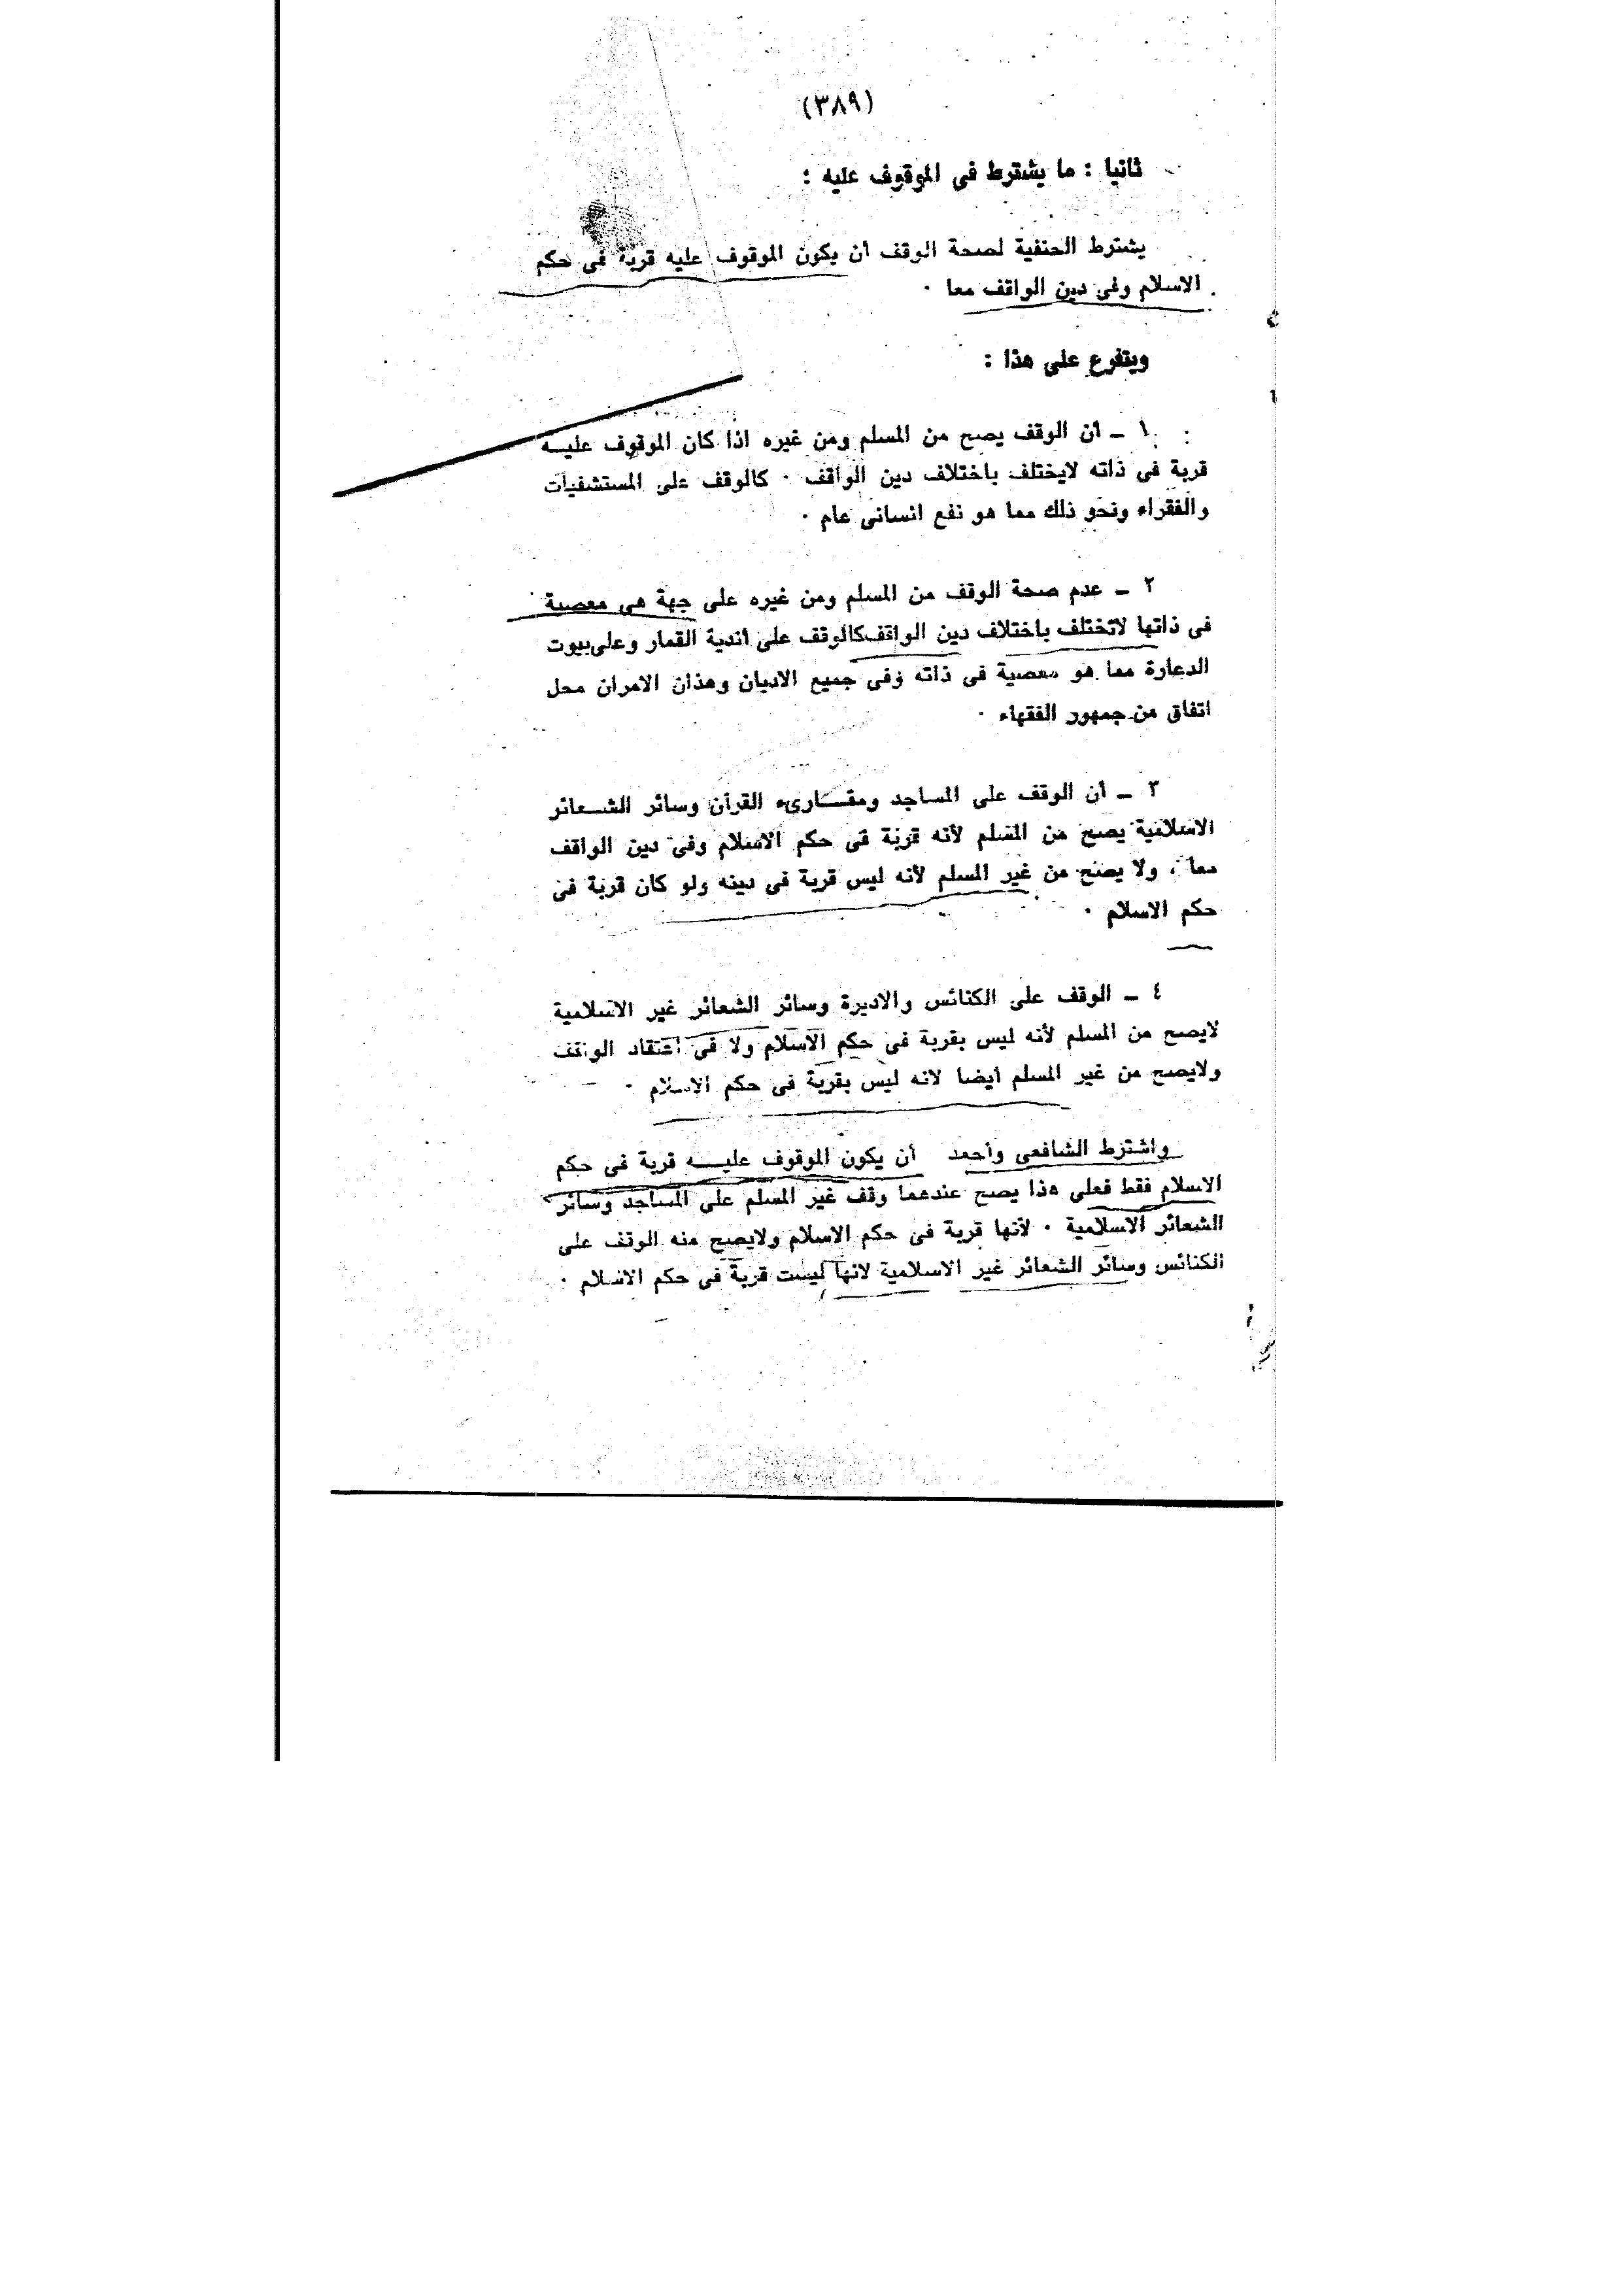 (٣٨٩)
ثانيا : ما يشترط فى الموقوف عليه :
يشترط الحنفية لصحة الوقف أن يكون الموقوف عليه قربة فى حكم
الاسلام وفى دين الواقف معا ٠
ويتفرع على هذا :
١ ـ أن الوقف يصح من المسلم ومن غيره اذا كان الموقوف عليــه
قربة فى ذاته لايختلف باختلاف دين الواقف ٠ كالوقف على المستشفيات
والفقراء ونحو ذلك مما هو نفع انسانى عام ٠
٢ ـ عدم صحة الوقف من المسلم ومن غيره على جهة هى معصية
فى ذاتها لاتختلف باختلاف دين الواقف كالوقف على أندية القمار وعلى بيوت
الدعارة مما هو معصية فى ذاته وفى جميع الاديان وهذان الامران محل
اتفاق من جمهور الفقهاء ٠
٣ ـ أن الوقف على المساجد ومقــارىء القرآن وسائر الشــعائر
الاسلامية يصح من المسلم لأنه قربة فى حكم الاسلام وفى دين الواقف
معا ، ولا يصح من غير المسلم لأنه ليس قربة فى دينه ولو كان قربة فى
حكم الاسلام ٠
٤ ـ الوقف على الكنائس والاديرة وسائر الشعائر غير الاسلامية
لايصح من المسلم لأنه ليس بقربة فى حكم الاسلام ولا فى اعتقاد الواقف
ولايصح من غير المسلم أيضا لانه ليس بقربة فى حكم الاسلام ٠
واشترط الشافعى وأحمد أن يكون الموقوف عليـــه قربة فى حكم
الاسلام فقط فعلى هذا يصح عندهما وقف غير المسلم على المساجد وسائر
الشعائر الاسلامية ٠ لأنها قربة فى حكم الاسلام ولايصح منه الوقف على
الكنائس وسائر الشعائر غير الاسلامية لانها ليست قربة فى حكم الاسلام ٠